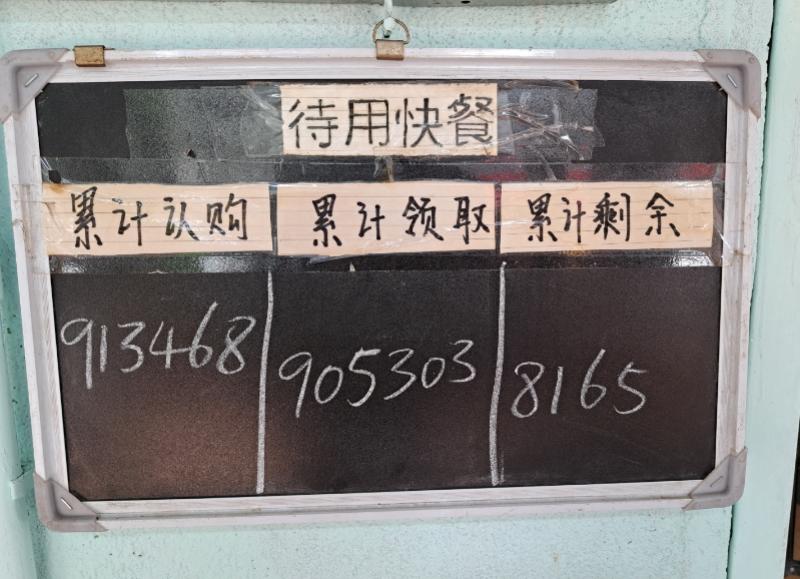 待用快餐
累计认购 累计领取 累计剩余
913468 905303 8165